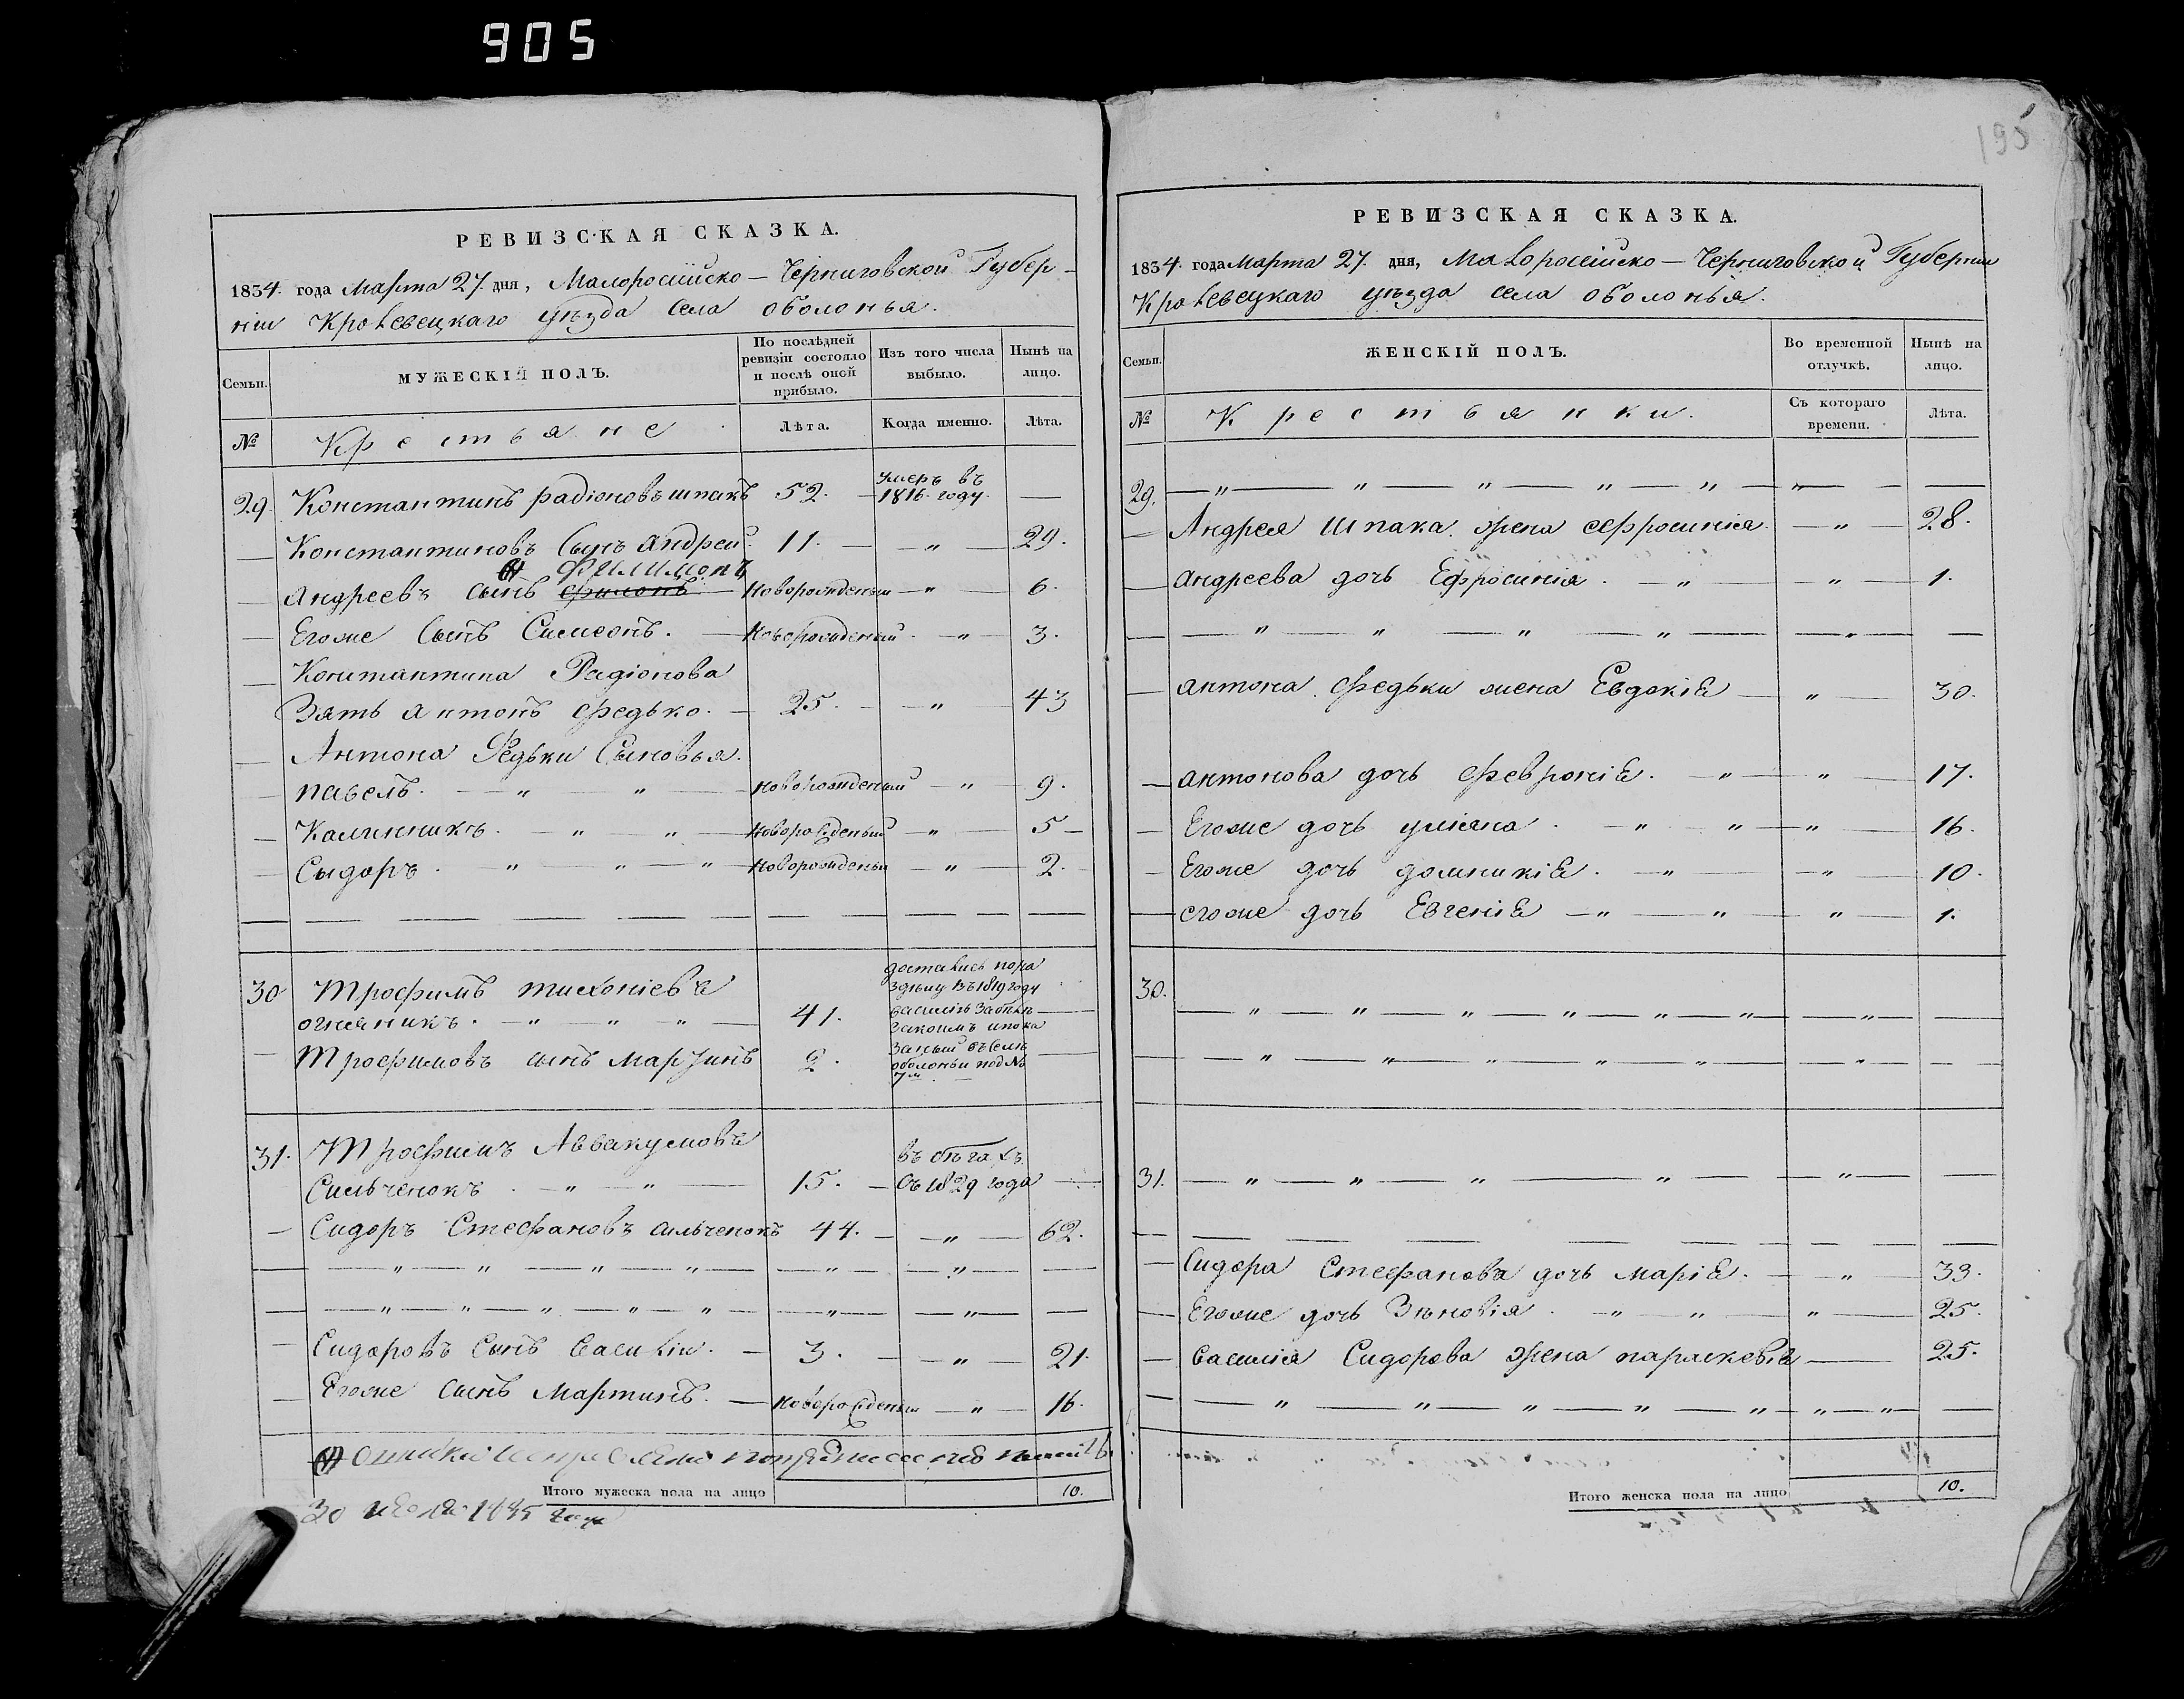 905
195
РЕВИЗСКАЯ СКАЗКА.
1834. года Марта 27. дня, Малоросійско — Черниговской Губер-
ніи Кролевецкаго уѣзда села оболонья.
Семьи.
МУЖЕСКІЙ ПОЛЪ.
По послѣдней ревизіи состояло и послѣ оной прибыло.
Изъ того числа выбыло.
Нынѣ на лицо.
№
Крестьяне
Лѣта.
Когда именно.
Лѣта.
29. Константинъ радіоновъ шпакъ 52. — умеръ въ 1816. году. —
— Константиновъ Сынъ Андрей. 11. — " — 29.
филимонъ
— Андреевъ сынъ филонъ — Новорожденый — " — 6.
— Егоже Сынъ Симеонъ. — Новорожденый. — " 3.
— Константина Радіонова
Зять антонъ федько. — 25. — " — 43
— Антона Федьки Сыновья.
— павелъ. — " — " — новорожденый — " — 9.
— Калинникъ. — " — " — Новорожденый — " — 5 —
— Сыдоръ. — " — " — " — Новорожденый — " — 2.
30 Трофимъ тихоніевъ
огняникъ. — " — " — " — 41.
— Трофимовъ сынъ Мартинъ 2.
здѣлу въ 1819 году
оболоньи под №
7м
31. Трофимъ Аввакумовъ
Сильченокъ. — " — " — 15. — въ бѣгахъ съ 1829 года —
— Сидоръ Стефановъ сильченокъ 44. — " — 62.
— " — " — " — " — " — " — " —
— " — " — " — " — " — " — " —
— Сидоровъ Сынъ Василій. — 3. — " — 21.
— Егоже сынъ Мартинъ. — новорожденый — " — 16.
Итого мужеска пола на лицо 10.
30 1835 года
РЕВИЗСКАЯ СКАЗКА.
1834. года Марта 27. дня, Малоросійско — Черниговской Губерніи
Кролевецкаго уѣзда села оболонья.
Семьи.
ЖЕНСКІЙ ПОЛЪ.
Во временной отлучкѣ.
Нынѣ на лицо.
№
Крестьянки.
Съ котораго времени.
Лѣта.
29. — " — " — " — " — " — " — —
— Андрея Шпака жена ефросинія. — " — 28.
— андреева дочь Ефросинія. — " — " — 1.
— " — " — " — " — " — —
— антона федьки жена Евдокія — " — 30.
— антонова дочь февронія. — " — " — 17.
— Егоже дочь уліяна. — " — " — " — 16.
— Егоже дочь домникія. — " — " — 10.
— егоже дочь Евгенія — " — " — " — 1.
30. — " — " — " — " — " — " — " — —
— " — " — " — " — " — " — —
31. — " — " — " — " — " — —
— Сидора Стефанова дочь марія. — " — 33.
— Егоже дочь Зѣновія. — " — " — " — 25.
— Василія Сидорова жена параскевія — 25.
— " — " — " — " — " — " — " —
Итого женска пола на лицо 10.